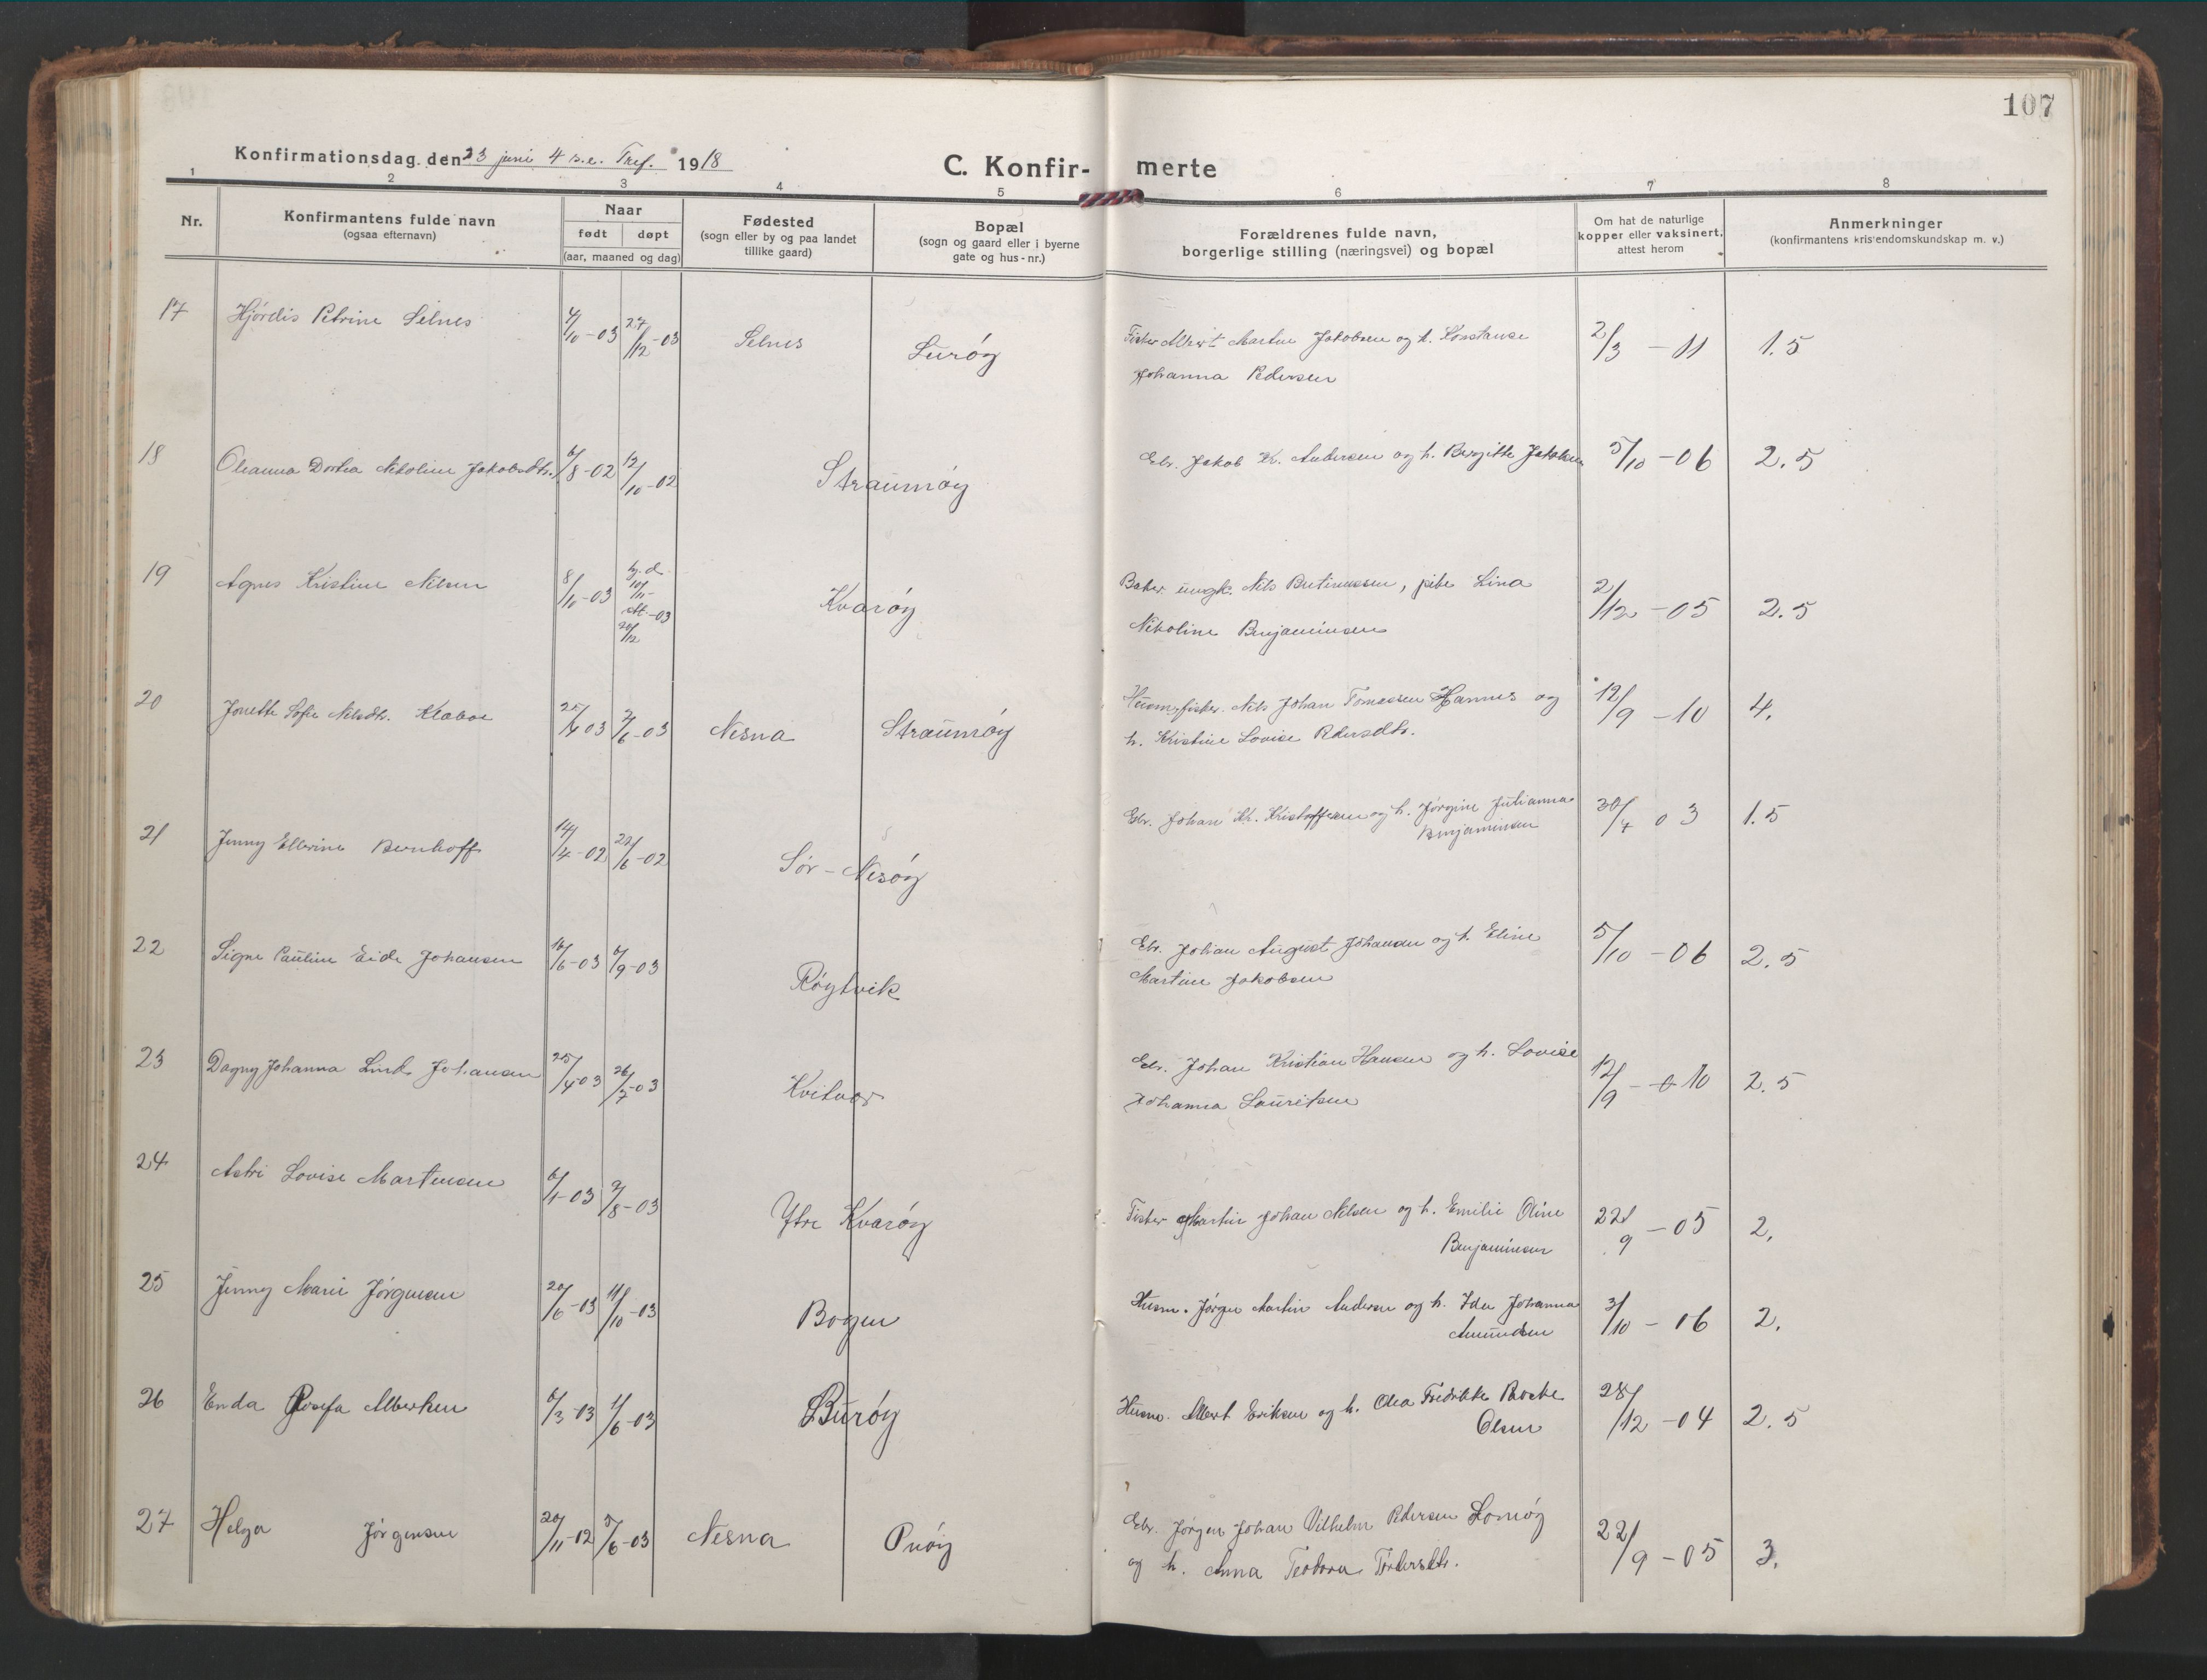 107
Konfirmationsdag den 23 juni 4 s.e. Tref. 1918
C. Konfirmerte
1 2 3 4 5 6 7 8
Nr.
Konfirmantens fulde navn
(ogsaa efternavn)
Naar
født døpt
(aar, maaned og dag)
Fødested
(sogn eller by og paa landet
tillike gaard)
Bopæl
(sogn og gaard eller i byerne
gate og hus-nr.)
Forældrenes fulde navn,
borgerlige stilling (næringsvei) og bopæl
Om hat de naturlige
kopper eller vaksinert,
attest herom
Anmerkninger
(konfirmantens kristendomskundskap m. v.)
17 Hjördis Petrine Selnes 4/10-03 27/12-03 Selnes Luröy Fisker Albert Martin Jakobsen og h. Konstanse 2/3 - 11 1.5
Johanna Pedersen
18 Oleanna Dortea Nikoline Jakobsdtr. 6/8-02 12/10-02 Straumöy Ebr. Jakob K. Andersen og h. Bergitte Jakobsen 5/10-06 2.5
19 Agnes Kristine Nilsen 8/10-03 hj.d. 10/11- st. -03 20/12 Kvaröy ungk. Nils , pike Lina 2/12-05 2.5
Nikoline Benjaminsen
20 Jonette Sofie Nilsdtr. Klæboe 25/ 03 7/6-03 Nesna Straumöy Husm. fisker. Nils Johan Tomassen Hannes og 12/9-10 4.
h. Kristine Lovise Pedersdtr.
21 Jenny Ellerine Bernhoff 14/4-02 22/6-02 Sör-Nesöy Ebr. Johan Kr. Kristoffersen og h. Jörgine Julianna 30/4 03 1.5
Benjaminsen
22 Signe Pauline Eide Johansen 16/6-03 6/9-03 Röytvik Ebr. Johan August Johansen og h. Eline 5/10-06 2.5
Martine Jakobsen
23 Dagny Johanna Lind Johansen 25/4-03 26/7-03 Kvitvar Ebr. Johan Kristian Hansen og h. Lovise 12/9-10 2.5
Johanna Lauritsen
24 Astri Lovise Martinsen 6/1-03 9/8-03 Ytre Kvaröy Fisker Martin Johan Nilsen og h. Emilie Oline 22/9-05 2,
Benjaminsen
25 Jenny Marie Jörgensen 20/6-03 11/10-03 Bogen Husm. Jörgen Martin Andersen og h. Ida Johanna 3/10-06 2.
Amundsen
26 Enda Josefa Albertsen 6/3-03 1/6-03 Buröy Husm. Albert Eriksen og h. Olea Fredrikke 28/12-04 2.5
Olsen
27 Helga Jörgensen 20/11-02 5/6-03 Nesna Ebr. Jörgen Johan Vilhelm Pedersen Lomöy 22/9-05 3.
og h. Anna Teodora